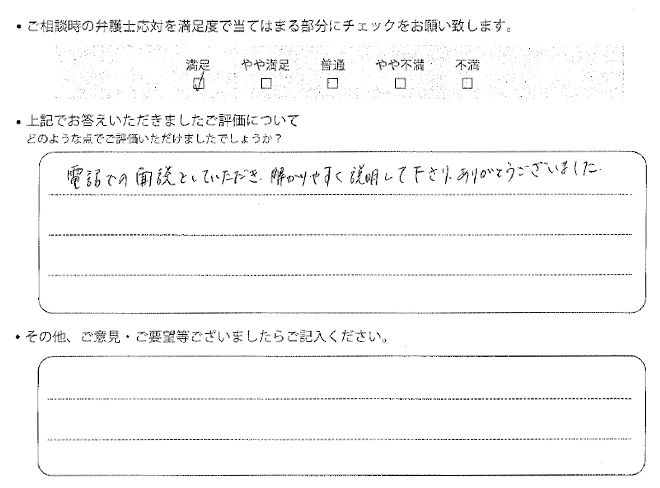 ・ご相談時の弁護士応対を満足度で当てはまる部分にチェックをお願い致します。
満足 やや満足 普通 やや不満 不満
・上記でお答えいただきましたご評価について
どのような点でご評価いただけましたでしょうか？
電話での面談としていただき、解かりやすく説明して下さり、ありがとうございました。
・その他、ご意見・ご要望等ございましたらご記入ください。